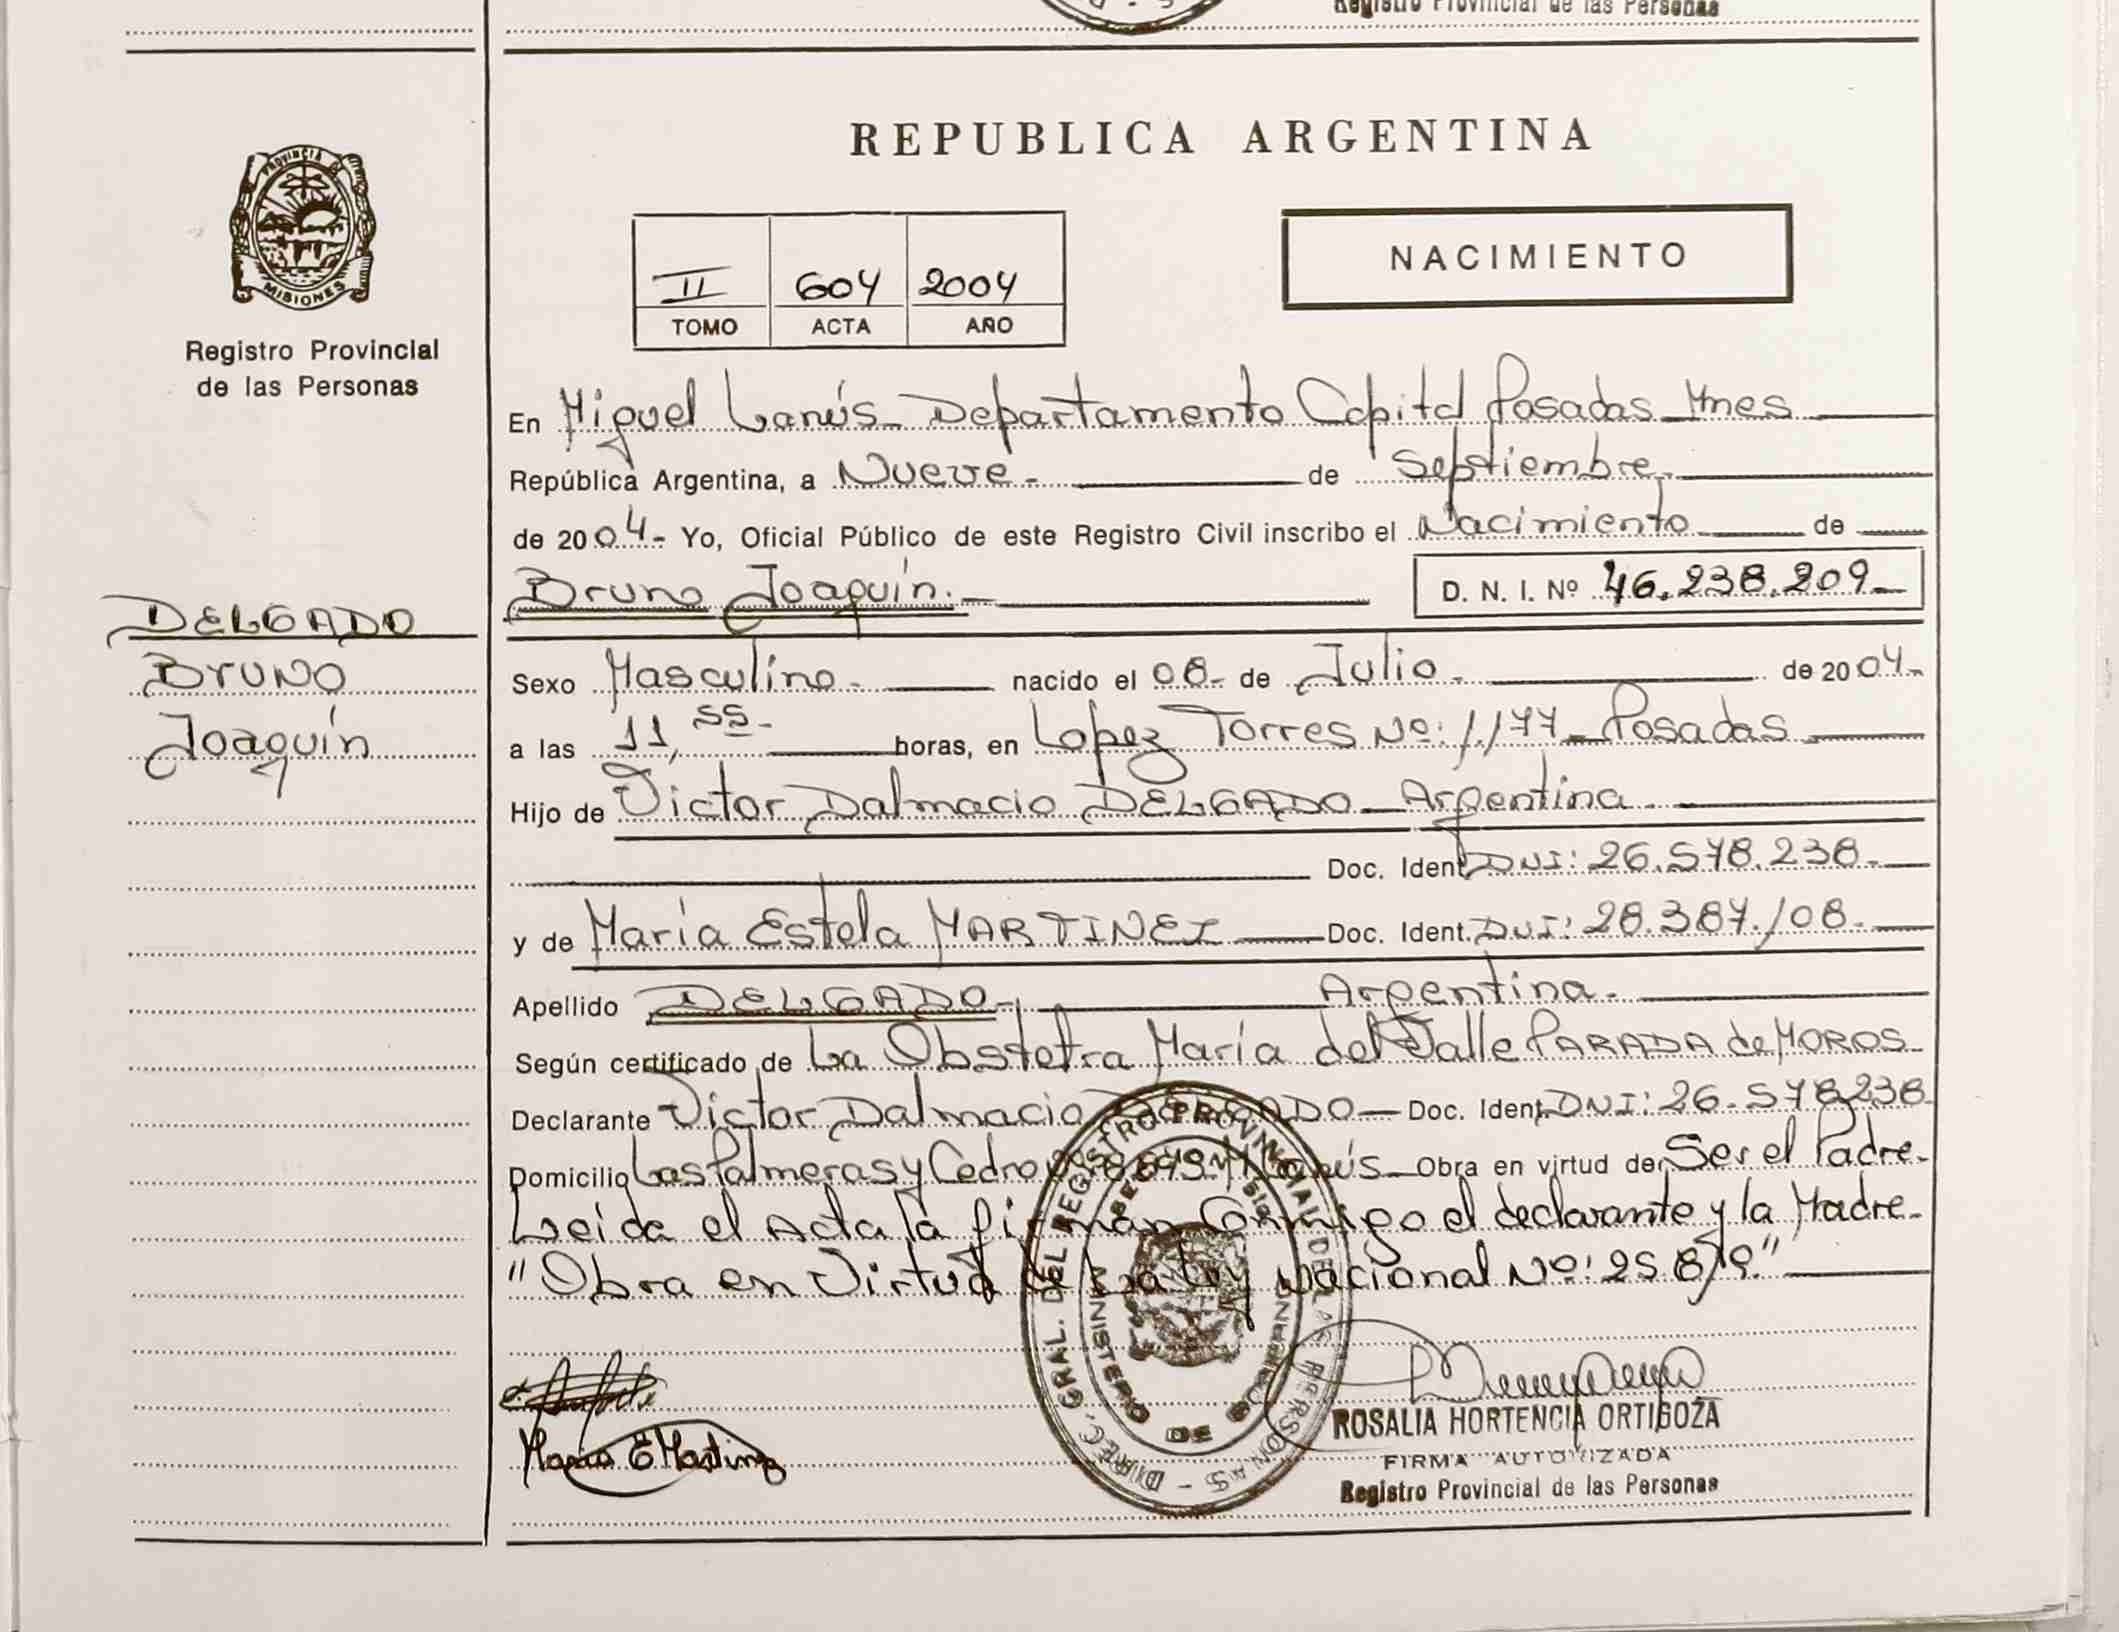 Registro Provincial de las Personas
REPUBLICA ARGENTINA
NACIMIENTO
II 604 2004
TOMO ACTA AÑO
PROVINCIA DE
MISIONES
Registro Provincial
de las Personas
DELGADO
Bruno
Joaquín
En Miguel Lanús Departamento Capital Posadas Mnes
República Argentina, a Nueve.- de Septiembre.-
de 2004.- Yo, Oficial Público de este Registro Civil inscribo el Nacimiento de
Bruno Joaquín.- D. N. I. Nº 46.238.209.-
Sexo Masculino.- nacido el 08.- de Julio.- de 2004.-
a las 11,55.- horas, en Lopez Torres Nº: 1177 Posadas
Hijo de Victor Dalmacio DELGADO Argentina.-
Doc. Ident. DNI: 26.578.238.-
y de María Estela MARTINEZ Doc. Ident. DNI: 28.387.108.-
Apellido DELGADO.- Argentina.-
Según certificado de La Obstetra María del Valle PARADA de MOROS.-
Declarante Victor Dalmacio DELGADO Doc. Ident. DNI: 26.578.238
Domicilio Las Palmeras y Cedro Lanús Obra en virtud de Ser el Padre.-
Leida el Acta la firman Conmigo el declarante y la Madre.-
"Obra en Virtud de La Ley Nacional Nº: 25.819"
María E Martinez
DIREC. GRAL. DEL REGISTRO PROVINCIAL DE LAS PERSONAS -
MINISTERIO DE GOBIERNO
MISIONES
ROSALIA HORTENCIA ORTIGOZA
FIRMA AUTORIZADA
Registro Provincial de las Personas